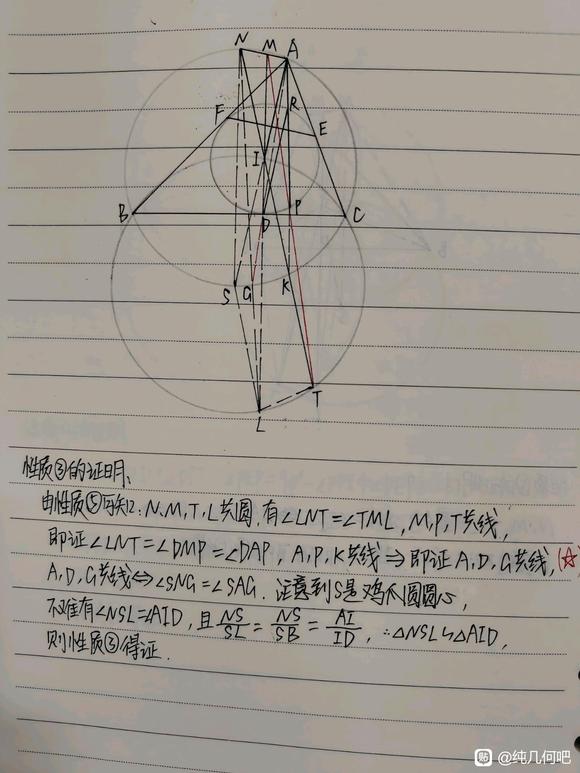 N M A
F R E
I
B D P C
S G K
T
L
性质③的证明、
由性质⑤可知:N,M,T,L共圆.有∠LNT=∠TML,M,P,T共线,
即证∠LNT=∠DMP=∠DAP,A,P,K共线⇒即证A,D,G共线,(☆)
A,D,G共线⇔∠SNG=∠SAG.注意到S是鸡爪圆圆心,
不难有∠NSL=∠AID,且NS/SL=NS/SB=AI/ID,∴△NSL∽△AID,
则性质③得证.
贴 @纯几何吧